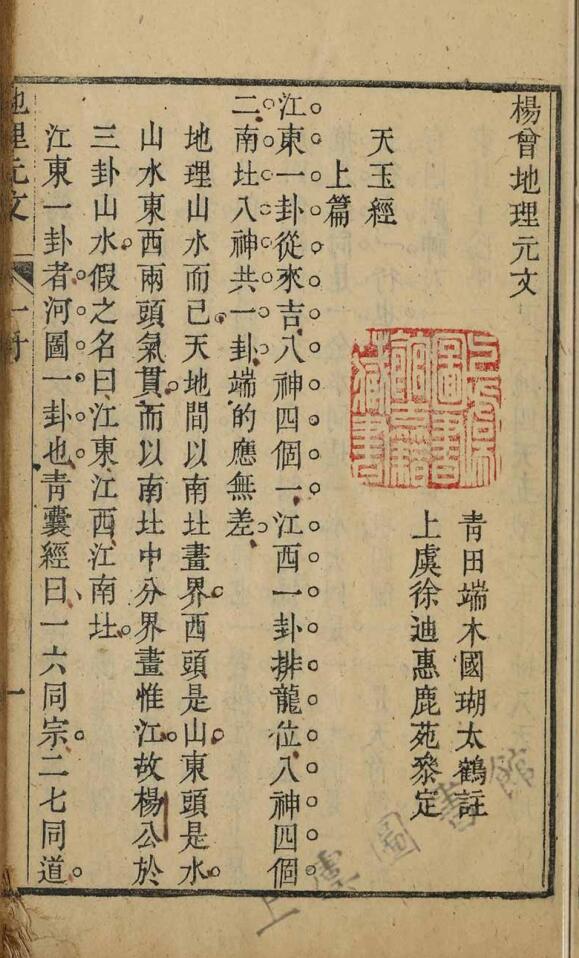 楊曾地理元文
青田端木國瑚太鶴註
上虞徐迪惠鹿苑叅定
天玉經
上篇
江東一卦從來吉八神四個一江西一卦排龍位八神四個
二南北八神共一卦端的應無差
地理山水而已天地間以南北畫界西頭是山東頭是水
山水東西兩頭氣貫而以南北中分界畫惟江故楊公於
三卦山水假之名曰江東江西江南北
江東一卦者河圖一卦也靑囊經曰一六同宗二七同道
地理元文
一
上虞圖書館